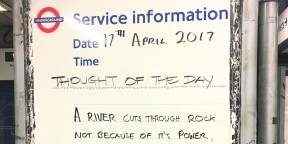 UNDERGROUND
Service information
Date 17TH APRIL 2017
Time
THOUGHT OF THE DAY
A RIVER CUTS THROUGH ROCK
NOT BECAUSE OF IT'S POWER,